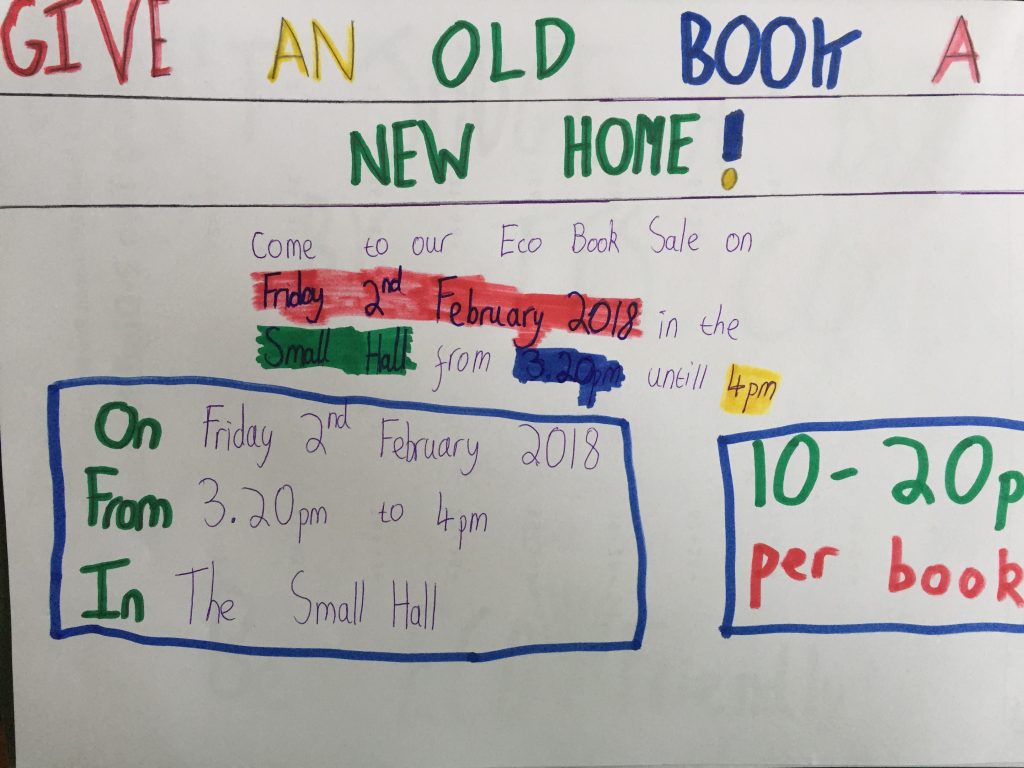 GIVE AN OLD BOOK A
NEW HOME!
Come to our Eco Book Sale on
Friday 2nd February 2018 in the
Small Hall from 3.20pm untill 4pm
On Friday 2nd February 2018
From 3.20pm to 4pm
In The Small Hall
10-20p
per book